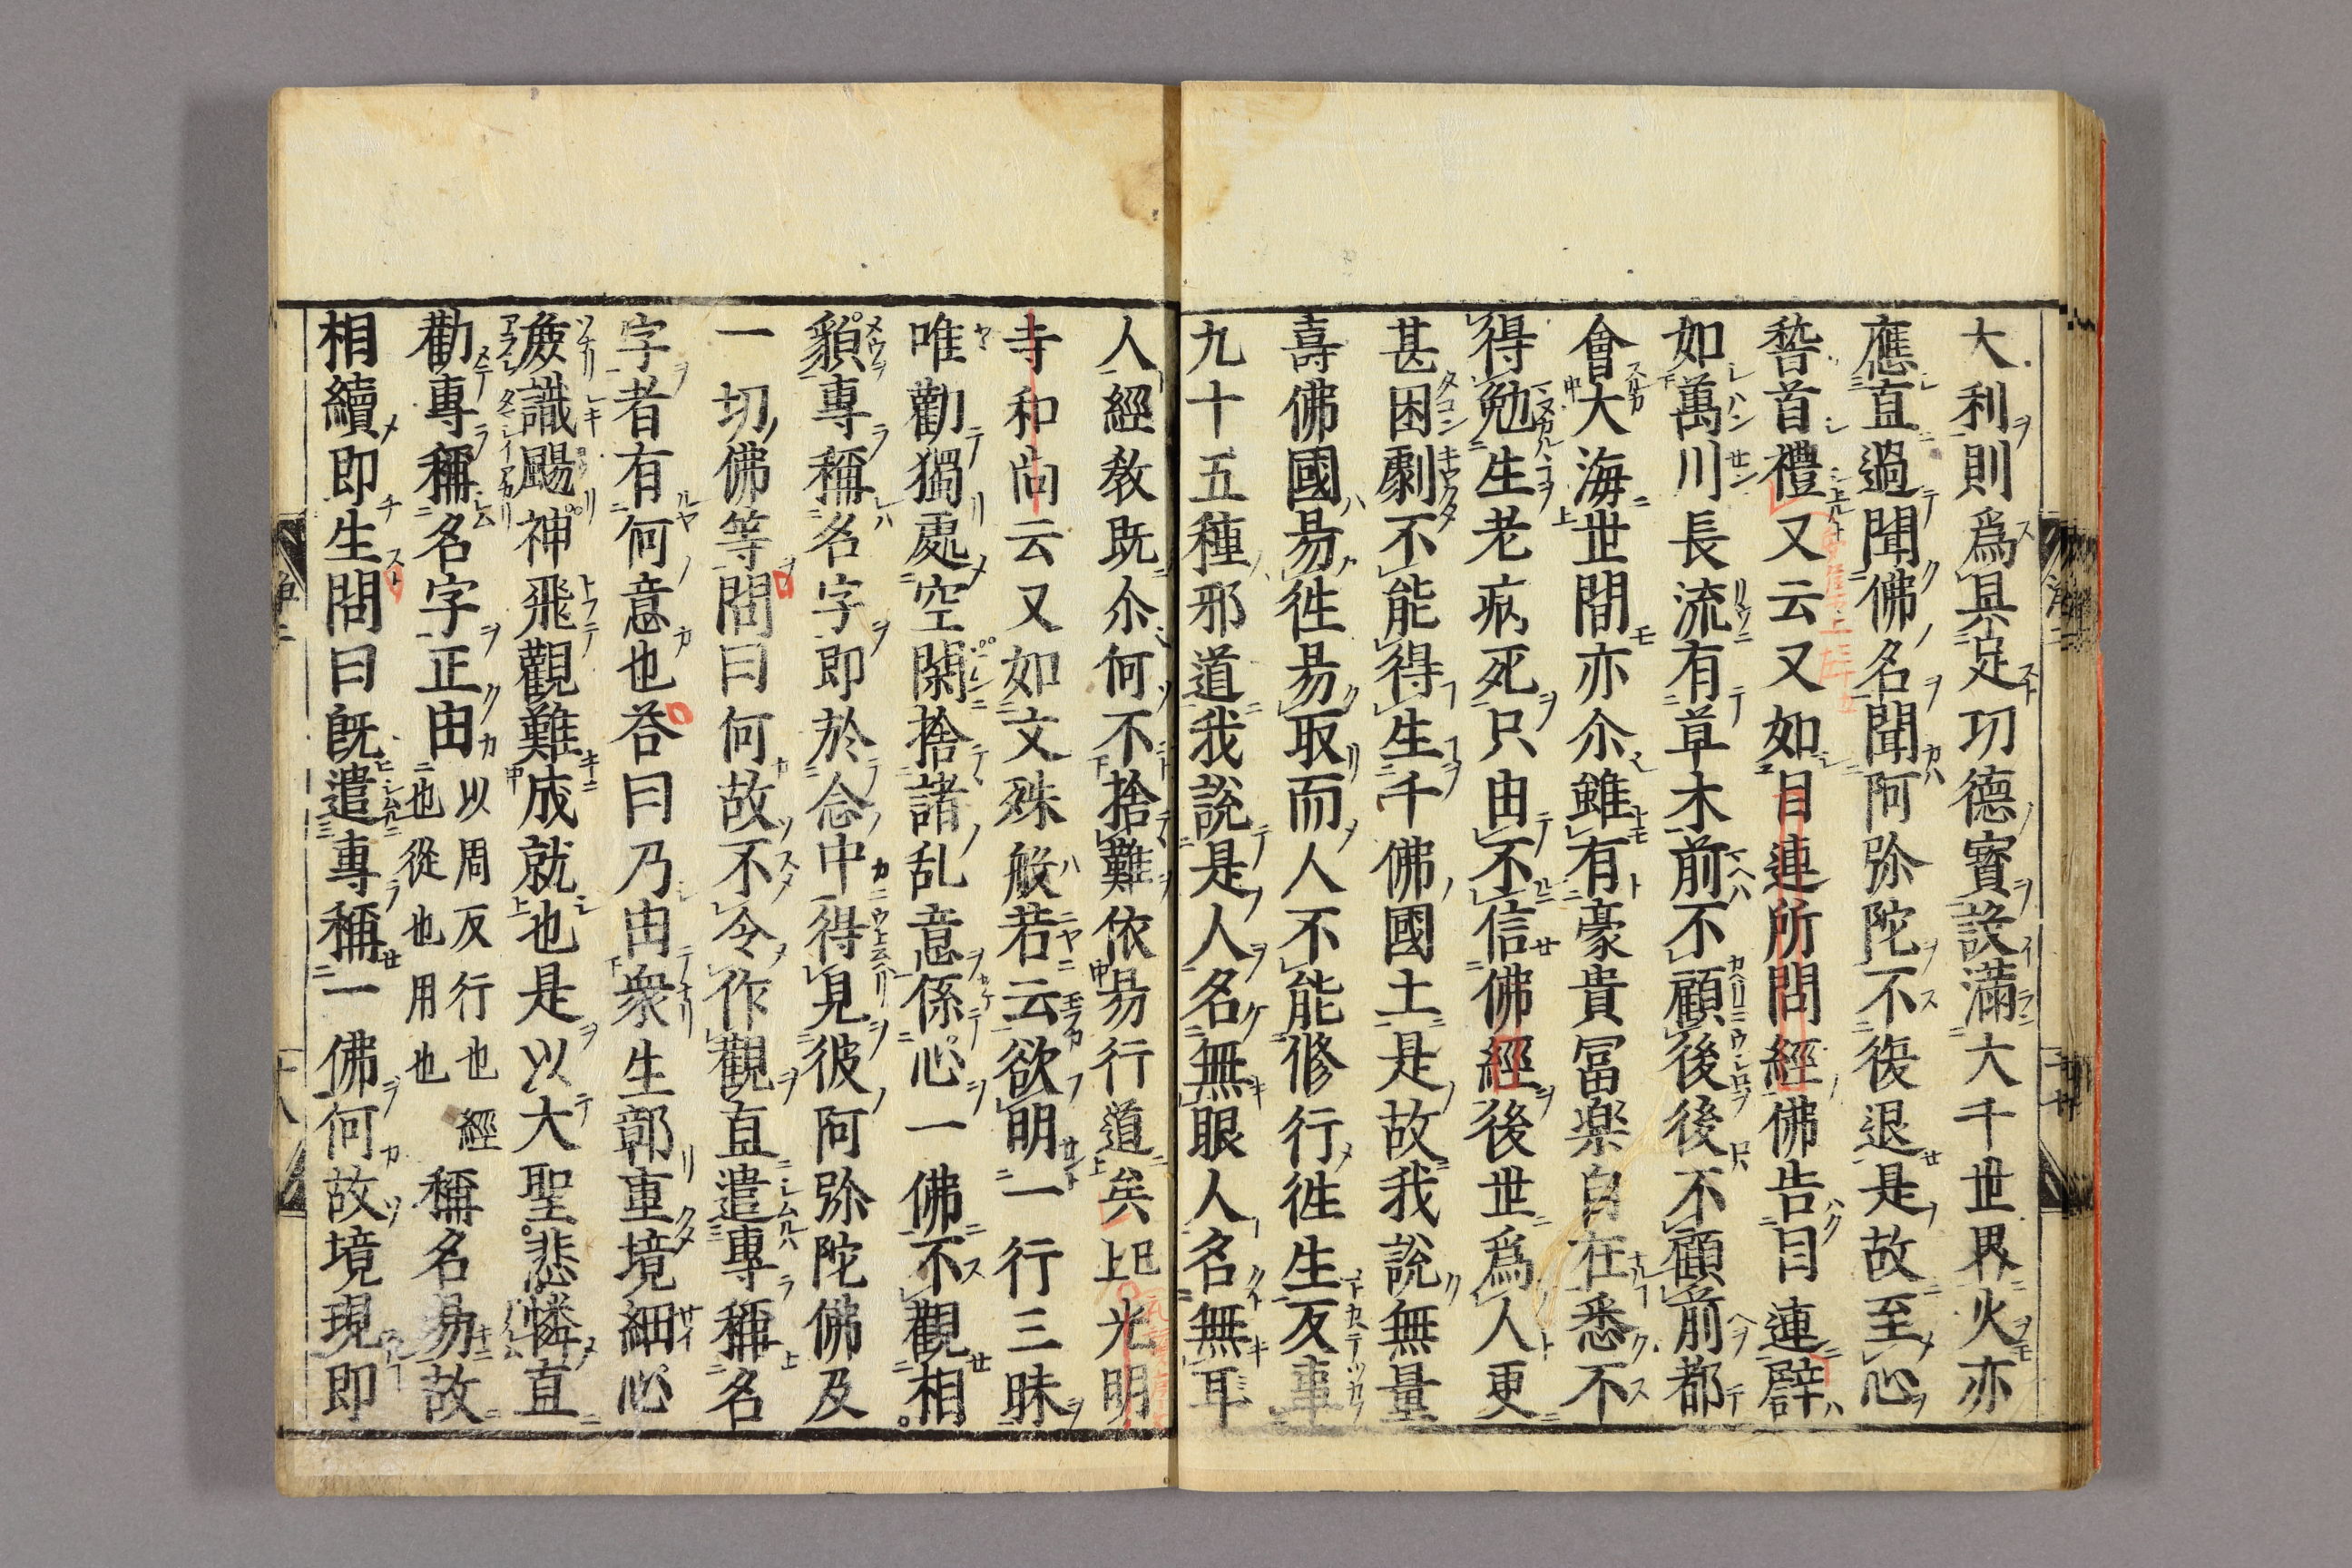 大利則爲具足功德寳設滿大千世界火亦
應直過聞佛名聞阿弥陀不復退是故至心
稽首禮又云又如目連所問經佛告目連譬
如萬川長流有草木前不顧後後不顧前都
會大海世間亦尒雖有豪貴冨楽自在悉不
得勉生老病死只由不信佛經後世爲人更
甚困劇不能得生千佛國土是故我說無量
壽佛國昜徃昜取而人不能修行徃生反事
九十五種邪道我說是人名無眼人名無耳
人經教既尒何不捨難依昜行道矣已上光明
寺和尚云又如文殊般若云欲明一行三昧
唯勸獨處空閑捨諸乱意係心一佛不觀相
貌專稱名字即於念中得見彼阿弥陀佛及
一切佛等問曰何故不令作觀直遣專稱名
字者有何意也荅曰乃由衆生鄣重境細心
麁識颺神飛觀難成就也是以大聖悲憐直
勸專稱名字正由以周反行也經也從也用也稱名昜故
相續即生問曰旣遣專稱一佛何故境現即